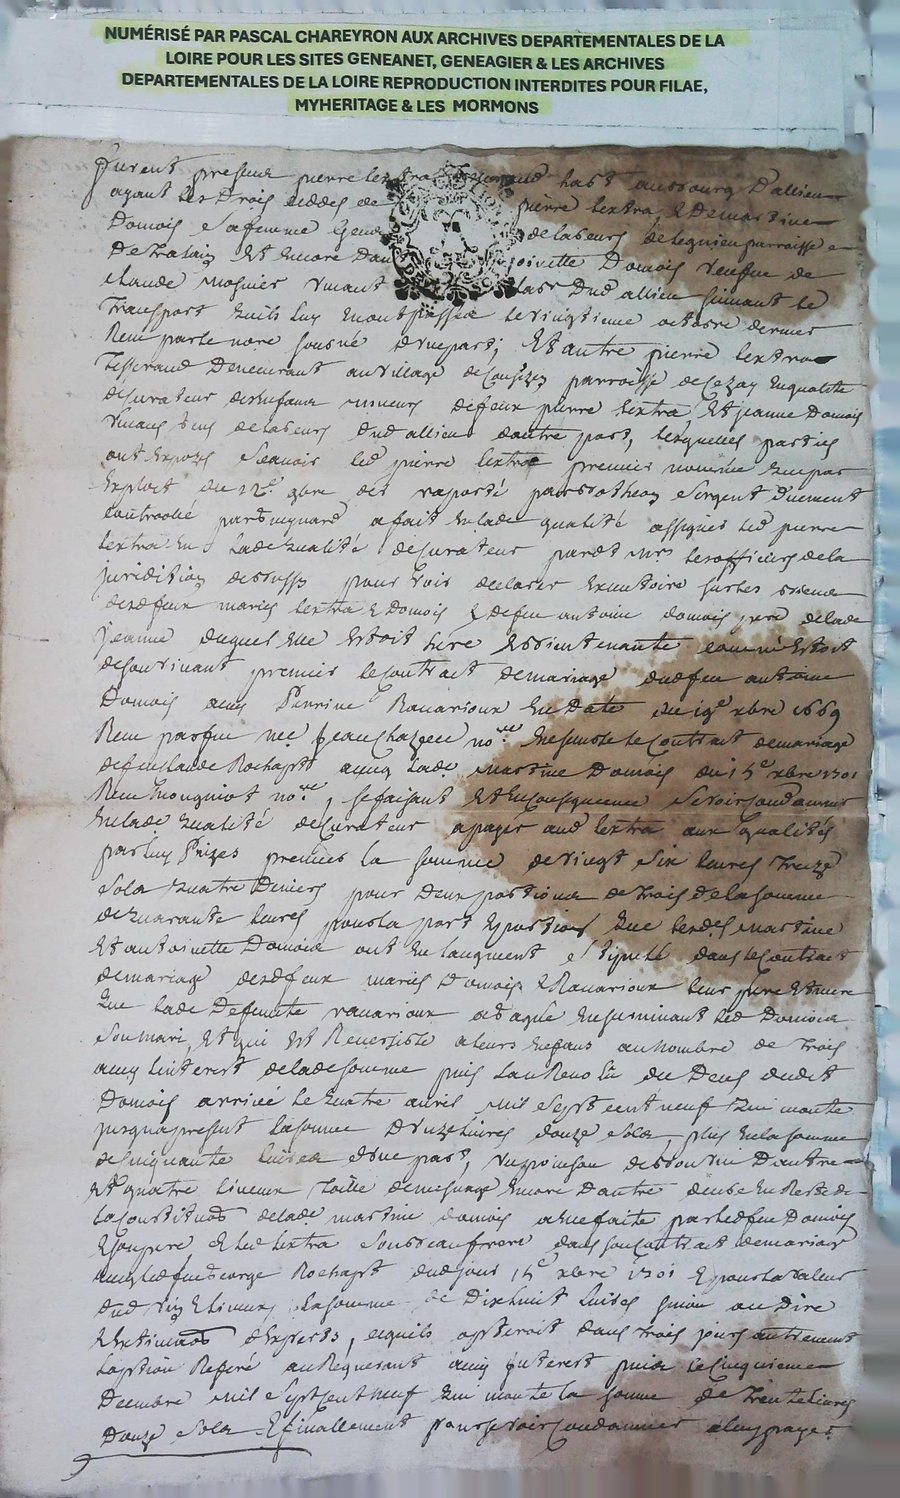 NUMÉRISÉ PAR PASCAL CHAREYRON AUX ARCHIVES DEPARTEMENTALES DE LA
LOIRE POUR LES SITES GENEANET, GENEAGIER & LES ARCHIVES
DEPARTEMENTALES DE LA LOIRE REPRODUCTION INTERDITES POUR FILAE,
MYHERITAGE & LES MORMONS
furent presens pierre lextra habt au bourg d'allieu
ayant les drois cedés de pierre lextra, & de martine
Domois sa femme de labeurs de parroisse
De Et Encore antoinette Domois veufue de
claude mosnier vivant labr dud allieu suivant le
transport quils luy En ont passéé le vingtieme octobre dernier
Receu par le nore soussigné d'une part; Et autre pierre lextra
tisserand Demeurant au village de parroisse de Cezay En qualité
de curateur des Enfans mineurs de feux pierre lextra, Et jeanne Domois
vivans de labeurs dud allieu d'autre part, lesquelles parties
ont Exposés scauoir led pierre lextra premier nommée que par
Exploit du 12e 9bre der raporté par sergent Duement
controolé par a fait En lade qualité assigner led pierre
lextra En lade qualité de curateur pardt Mrs les officiers de la
juridition pour voir declarer Exécutoire sur les
desd feux mariés lextra & Domois & de feu antoine domois pere de lade
jeanne duquel Elle Estoit here Et comme Estoit
premier le contract de mariage dud feu antoine
Domois auec Perrine Rauarioux En Date du 19e xbre 1669
Receu par feu Me Beauchazeee nore Ensemble le Contract de mariage
de feu claude Rochapt auec lade Martine Domois du 15e xbre 1701
Receu nore, Et En Consequence se voir Condamner
En lade qualité de Curateur a payer aud lextra aux qualités
par luy Prizes premier la somme de vingt six liures treize
sols quatre Deniers pour Deux portions de trois de la somme
de quarante liures pour la part & portion que lesdes Martine
Et antoinette Domois ont En laugment stipullé dans le Contract
de mariage desd feux mariés Domois & Rauarioux leur pere Et mere
Que lade Deffuncte rauarioux a gagné En suruiuant led Domois
son mari, Et qui Est Reuersible a leurs Enfans au nombre de trois
auec linterest de lade somme puis du Deces dudit
Domois arriué le quatre auril mil sept cent neuf qui monte
jusqua present la somme D'unze liures douze sols, plus En la somme
de cinquante liures d'une part, Un poinson de bon vin D'autre
Et quatre linceux toille de mesnage Encore d'autre deube En Reste de
la Constitution de lade martine domois a Elle faite par led feu Domois
son pere & led lextra son beau frere dans son Contract de mariage
auec led feu George Rochapt dud jour 15e xbre 1701 & pour la valeur
dud vin & linceux la somme de Dix huit liures sinon au Dire
& Estimation d'Experts, opteroit dans trois jours autrement
l'option Referé au Requerant auec Interest puis le cinquieme
Decembre mil sept cent neuf qui monte la somme de trente liures
Douze sols & finallement pour se voir Condamner a luy payer